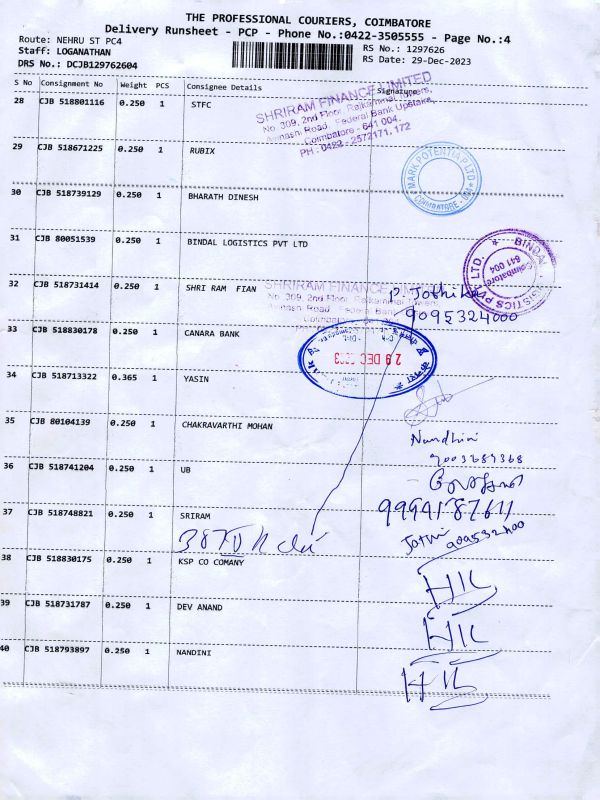 THE PROFESSIONAL COURIERS, COIMBATORE
Delivery Runsheet - PCP - Phone No.:0422-3505555 - Page No.:4
Route: NEHRU ST PC4
RS No.: 1297626
Staff: LOGANATHAN
RS Date: 29-Dec-2023
DRS No.: DCJB129762604
S No Consignment No Weight PCS Consignee Details Signature
28 CJB 518801116 0.250 1 STFC
SHRIRAM FINANCE LIMITED
No. 309, 2nd Floor, Rajkammal Towers,
Avinashi Road, Federal Bank Upstairs,
Coimbatore - 641 004.
PH : 0422 - 2572171, 172
29 CJB 518671225 0.250 1 RUBIX
MARK POTENTIA P LTD
COIMBATORE
30 CJB 518739129 0.250 1 BHARATH DINESH
31 CJB 80051539 0.250 1 BINDAL LOGISTICS PVT LTD
BINDAL LOGISTICS P LTD.
Coimbatore
641 004
32 CJB 518731414 0.250 1 SHRI RAM FIAN
SHRIRAM FINANCE LIMITED
No. 309, 2nd Floor, Rajkammal Towers,
Avinashi Road, Federal Bank
P. Jothika
9095324000
33 CJB 518830178 0.250 1 CANARA BANK
29 DEC 2023
34 CJB 518713322 0.365 1 YASIN
35 CJB 80104139 0.250 1 CHAKRAVARTHI MOHAN
Nandhini
36 CJB 518741204 0.250 1 UB
37 CJB 518748821 0.250 1 SRIRAM
Jothi
38 CJB 518830175 0.250 1 KSP CO COMANY
39 CJB 518731787 0.250 1 DEV ANAND
40 CJB 518793897 0.250 1 NANDINI